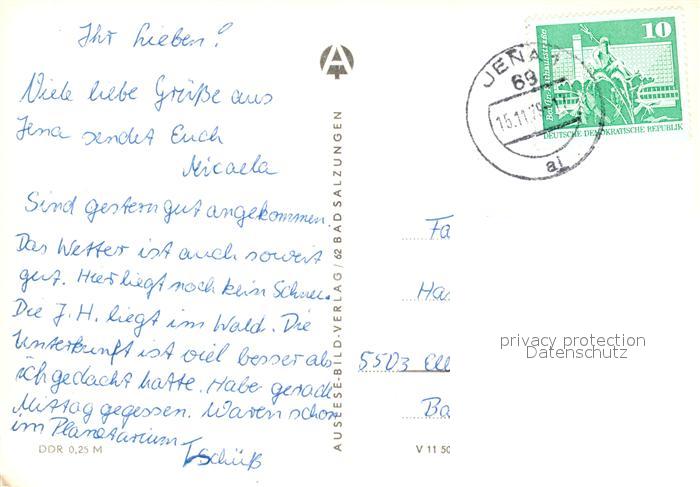 Ihr Lieben!
Viele liebe Grüße aus
Jena sendet Euch
Micaela
Sind gestern gut angekommen.
Das Wetter ist auch soweit
gut. Hier liegt noch kein Schnee.
Die J.H. liegt im Wald. Die
Unterkunft ist viel besser als
ich gedacht hatte. Habe gerade
Mittag gegessen. Waren schon
im Planetarium
Tschüß
DDR 0,25 M
AUSLESE-BILD-VERLAG/62 BAD SALZUNGEN
V 11 50
10
Berlin, Rathausstraße
DEUTSCHE DEMOKRATISCHE REPUBLIK
JENA
69
15.11.79
aj
Fa
Has
5503
Ba
privacy protection
Datenschutz